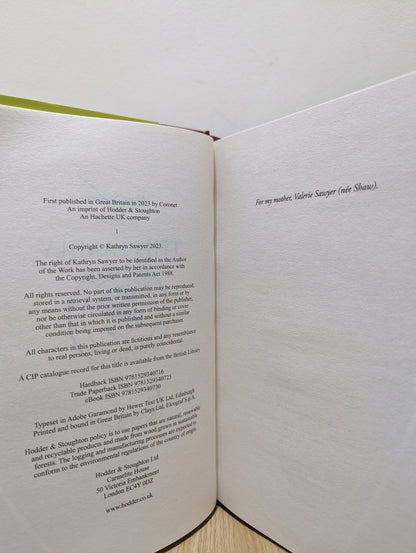 First published in Great Britain in 2023 by Coronet
An imprint of Hodder & Stoughton
An Hachette UK company
1
Copyright © Kathryn Sawyer 2023
The right of Kathryn Sawyer to be identified as the Author
of the Work has been asserted by her in accordance with
the Copyright, Designs and Patents Act 1988.
All rights reserved. No part of this publication may be reproduced,
stored in a retrieval system, or transmitted, in any form or by
any means without the prior written permission of the publisher,
nor be otherwise circulated in any form of binding or cover
other than that in which it is published and without a similar
condition being imposed on the subsequent purchaser.
All characters in this publication are fictitious and any resemblance
to real persons, living or dead, is purely coincidental.
A CIP catalogue record for this title is available from the British Library
Hardback ISBN 9781529340716
Trade Paperback ISBN 9781529340723
eBook ISBN 9781529340730
Typeset in Adobe Garamond by Hewer Text UK Ltd, Edinburgh
Printed and bound in Great Britain by Clays Ltd, Elcograf S.p.A.
Hodder & Stoughton policy is to use papers that are natural, renewable
and recyclable products and made from wood grown in sustainable
forests. The logging and manufacturing processes are expected to
conform to the environmental regulations of the country of origin.
Hodder & Stoughton Ltd
Carmelite House
50 Victoria Embankment
London EC4Y 0DZ
www.hodder.co.uk
For my mother, Valerie Sawyer (née Shaw).